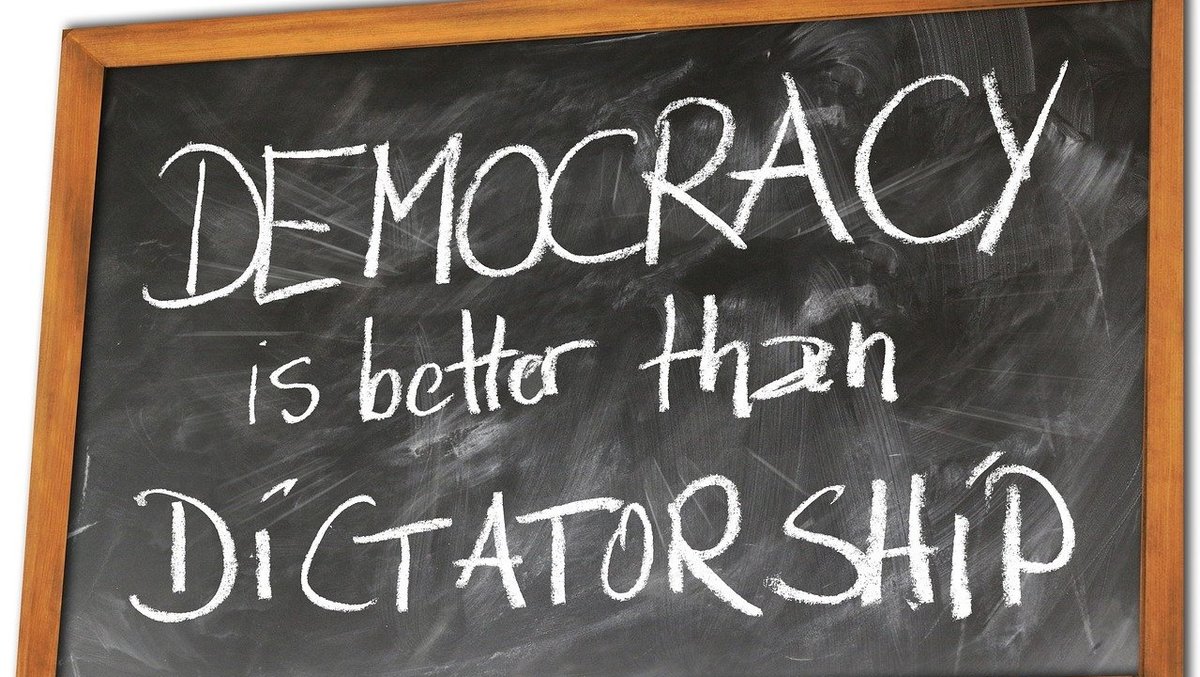 DEMOCRACY
is better than
DiCTATORSHiP